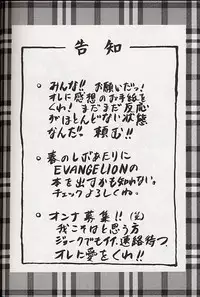 告知
・みんな!! お願いだっ!
オレに感想のお手紙を
くれ! まだまだ反応
がほとんどない状態
なんだ!! 頼む!!
・春のしぶあたりに
EVANGELIONの
本を出すかも知れない。
チェックよろしくね。
・オンナ募集!! (笑)
我こそはと思う方
ジョークでもイイ、連絡待つ
オレに愛をくれ!!